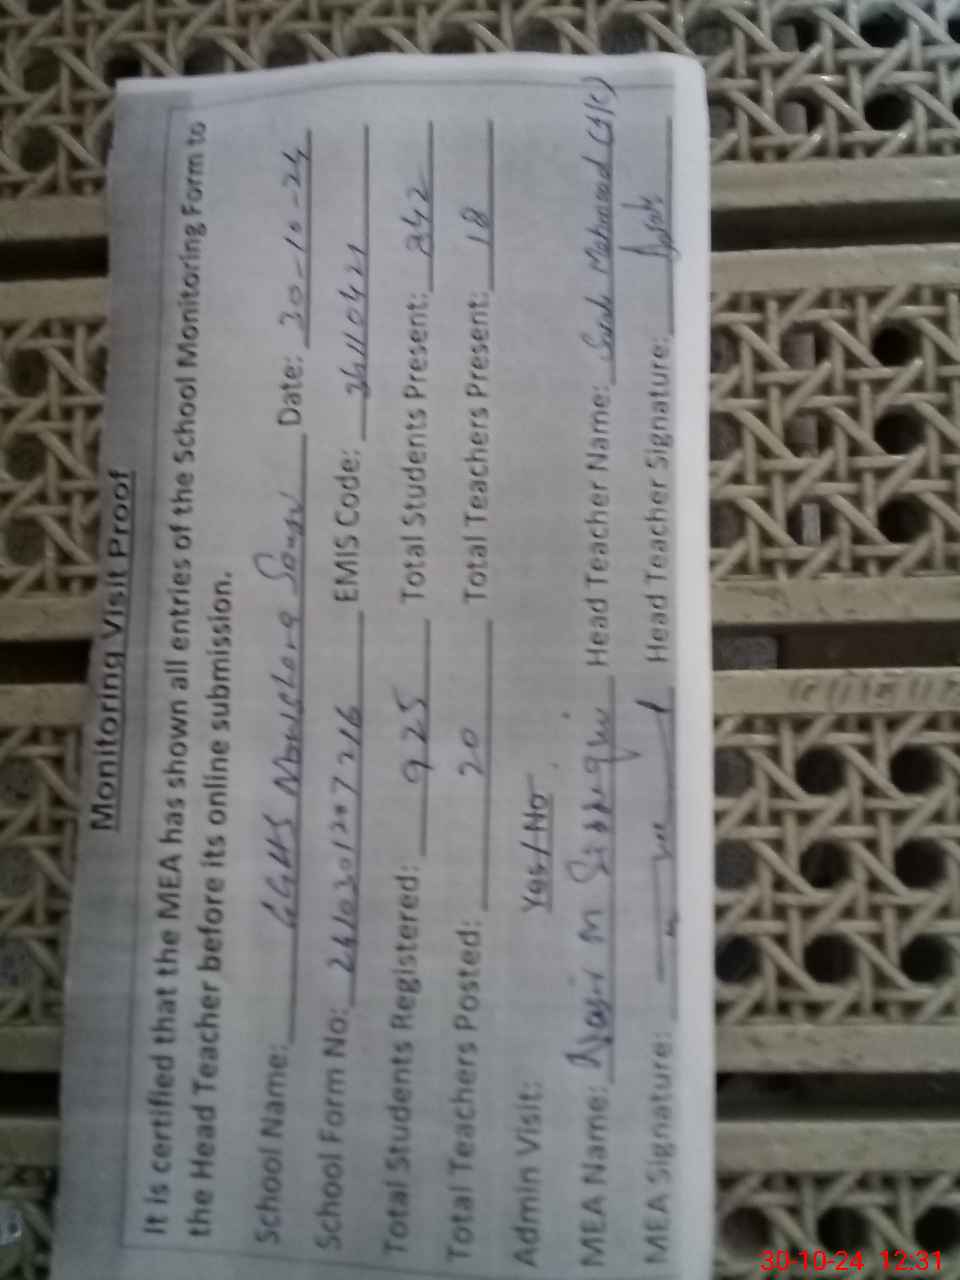 Monitoring Visit Proof
It is certified that the MEA has shown all entries of the School Monitoring Form to
the Head Teacher before its online submission.
School Name: GGHS Date: 30-10-24
School Form No: EMIS Code:
Total Students Registered: 925 Total Students Present: 842
Total Teachers Posted: 20 Total Teachers Present: 18
Admin Visit: Yes/No
MEA Name: M Head Teacher Name: Mahmood
MEA Signature: Head Teacher Signature:
30-10-24 12:31